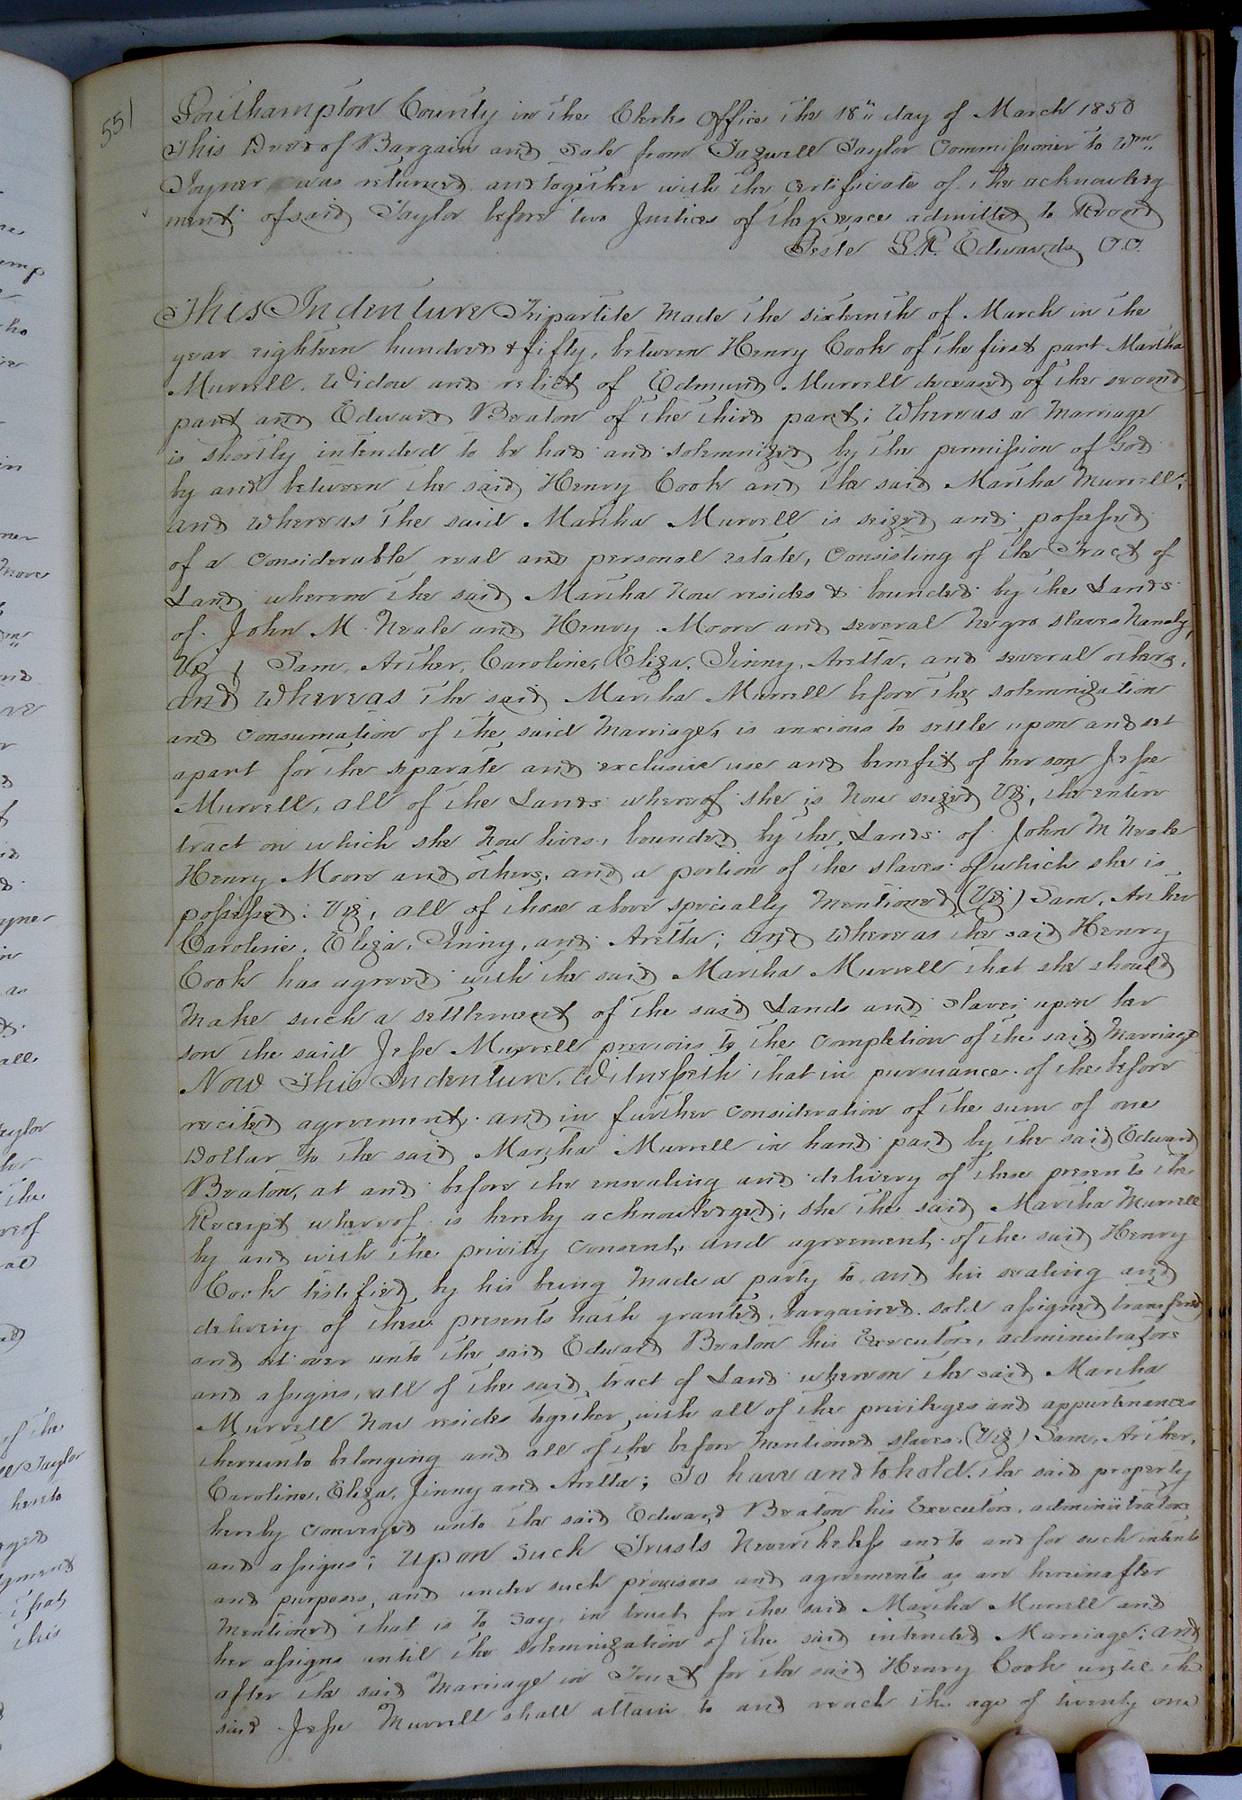 551
Southampton County in the Clerks Office the 18" day of March 1850
This Deed of Bargain and Sale from Tazwell Taylor Commissioner to Wm
Joyner was returned and together with the certificate of the acknowledg
ment of said Taylor before two Justices of the peace admitted to Record
Teste L. R. Edwards C.C.
This Indenture Tripartite made the sixteenth of March in the
year eighteen hundred & fifty, between Henry Cook of the first part Martha
Murrell, Widow and relict of Edmund Murrell deceased of the second
part and Edward Beaton of the third part; Whereas a Marriage
is shortly intended to be had and solemnized by the permission of God
by and between the said Henry Cook and the said Martha Murrell;
and whereas the said Martha Murrell is seized and possessed
of a considerable real and personal estate, consisting of the Tract of
Land whereon the said Martha now resides & bounded by the Lands
of John M. Neale and Henry Moore and several Negro slaves Namely,
Viz, Sam, Archer, Caroline, Eliza, Jinny, Aretta, and several others,
and whereas the said Martha Murrell before the solemnization
and consumation of the said Marriage, is anxious to settle upon and set
apart for the separate and exclusive use and benefit of her son Jesse
Murrell, all of the Lands whereof she is now seized Viz, the entire
tract on which she now lives, bounded by the Lands of John M Neale
Henry Moore and others, and a portion of the slaves of which she is
possessed: Viz, all of those above specially mentioned (Viz) Sam, Archer
Caroline, Eliza, Jinny, and Aretta; and whereas the said Henry
Cook has agreed with the said Martha Murrell that she should
make such a settlement of the said Lands and slaves upon her
son the said Jesse Murrell previous to the completion of the said Marriage
Now This Indenture, Witnesseth that in pursuance of the before
recited agreement and in further consideration of the sum of one
Dollar to the said Martha Murrell in hand paid by the said Edward
Beaton, at and before the ensealing and delivery of these presents the
Receipt whereof is hereby acknowledged; she the said Martha Murrell
by and with the privity consent, and agreement of the said Henry
Cook testified by his being made a party to and his sealing and
delivery of these presents hath granted, bargained sold assigned transfered
and set over unto the said Edward Beaton his Executors, administrators
and assigns, all of the said tract of Land whereon the said Martha
Murrell now resides together with all of the privileges and appurtenances
thereunto belonging and all of the before mentioned slaves, (Viz) Sam, Archer,
Caroline, Eliza, Jinny and Aretta; To have and to hold. the said property
hereby conveyed unto the said Edward Beaton his Executors, administrators
and assigns; upon such Trusts Nevertheless and to and for such intents
and purposes, and under such provisoes and agreements as are hereinafter
mentioned that is to say, in trust for the said Martha Murrell and
her assigns until the solemnization of the said intended Marriage; and
after the said Marriage in Trust for the said Henry Cook until the
said Jesse Murrell shall attain to and reach the age of twenty one